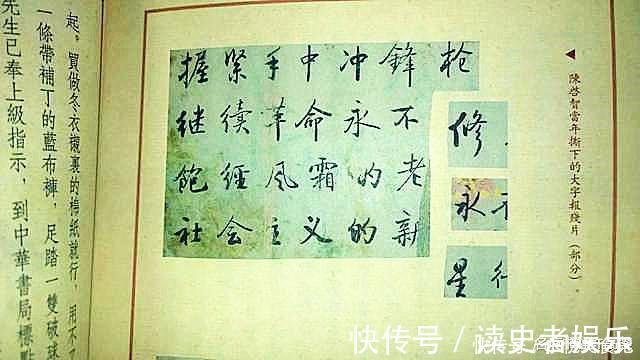 ◀陳啓智當年撕下的大字報殘片（部分）。
握緊手中冲鋒枪
继續革命永不
饱經风霜的老
社会主义的新
修
永
星
起。買做冬衣襯裏的棉紙就行，用不
一條帶補丁的藍布褲，足踏一雙破球
先生已奉上級指示，到中華書局標點
快传号 / 读史老娱乐